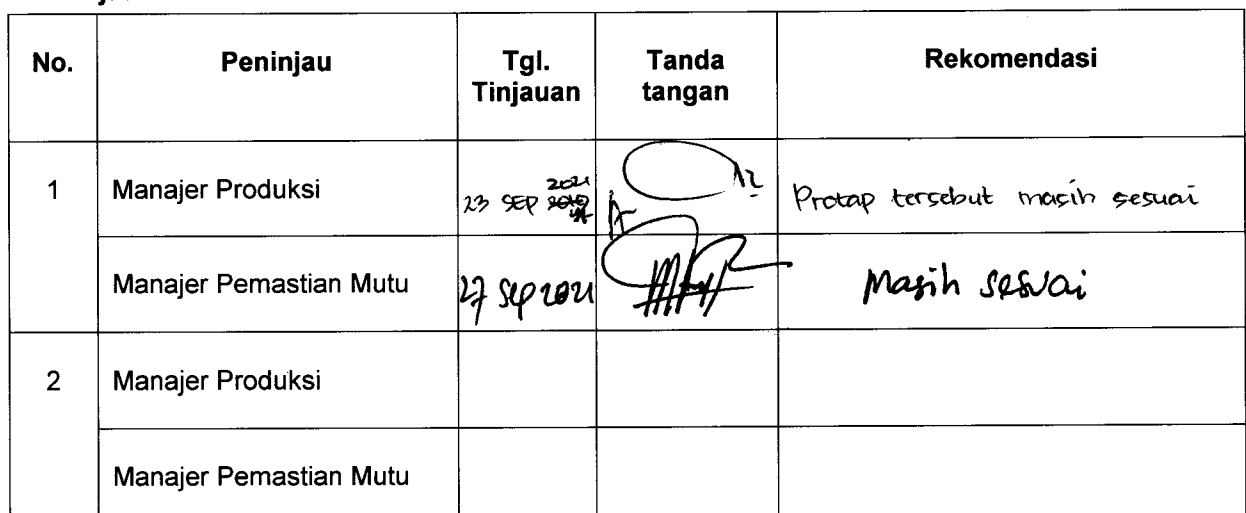 No.
Peninjau
Tgl. Tinjauan
Tanda tangan
Rekomendasi
1
Manajer Produksi
23 SEP 2021
Protap tersebut masih sesuai
Manajer Pemastian Mutu
27 Sep 2021
Masih sesuai
2
Manajer Produksi
Manajer Pemastian Mutu